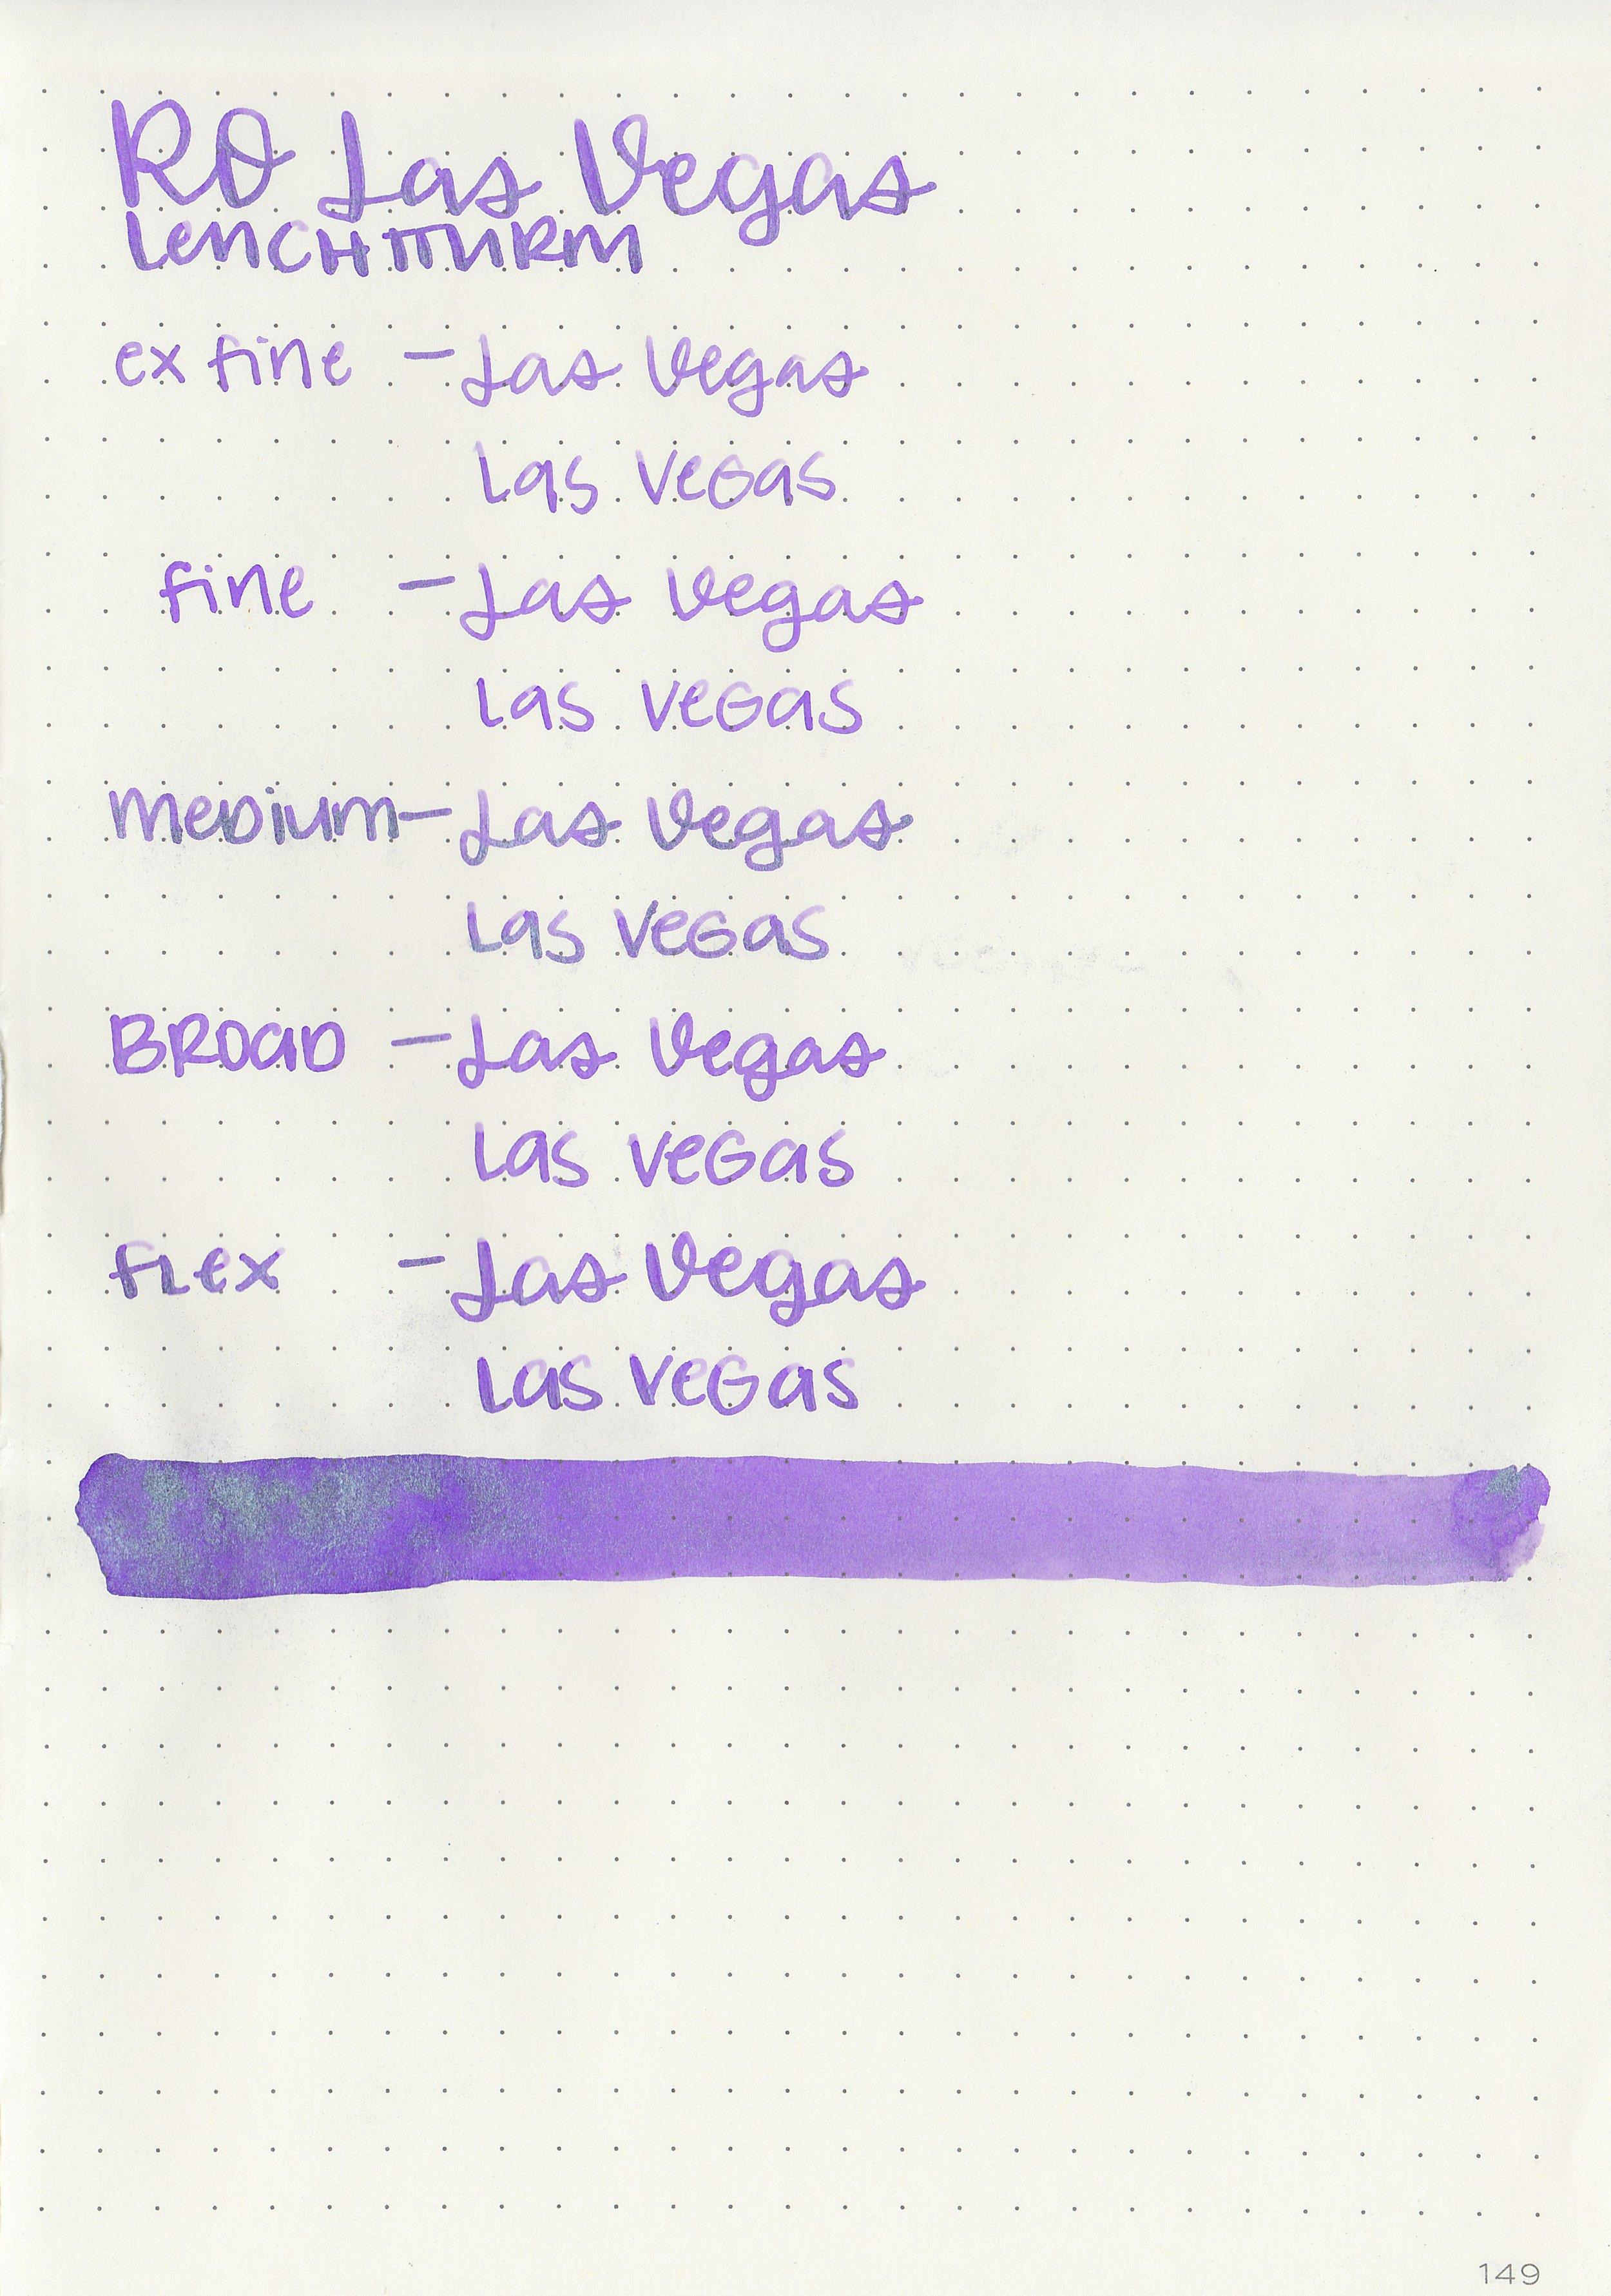 RO Las Vegas
LeuCHTTURM
ex fine - Las Vegas
Las VeGas
fine - Las Vegas
Las VeGas
MeDium - Las Vegas
Las VeGas
BROaD - Las Vegas
Las VeGas
flex - Las Vegas
Las VeGas
149